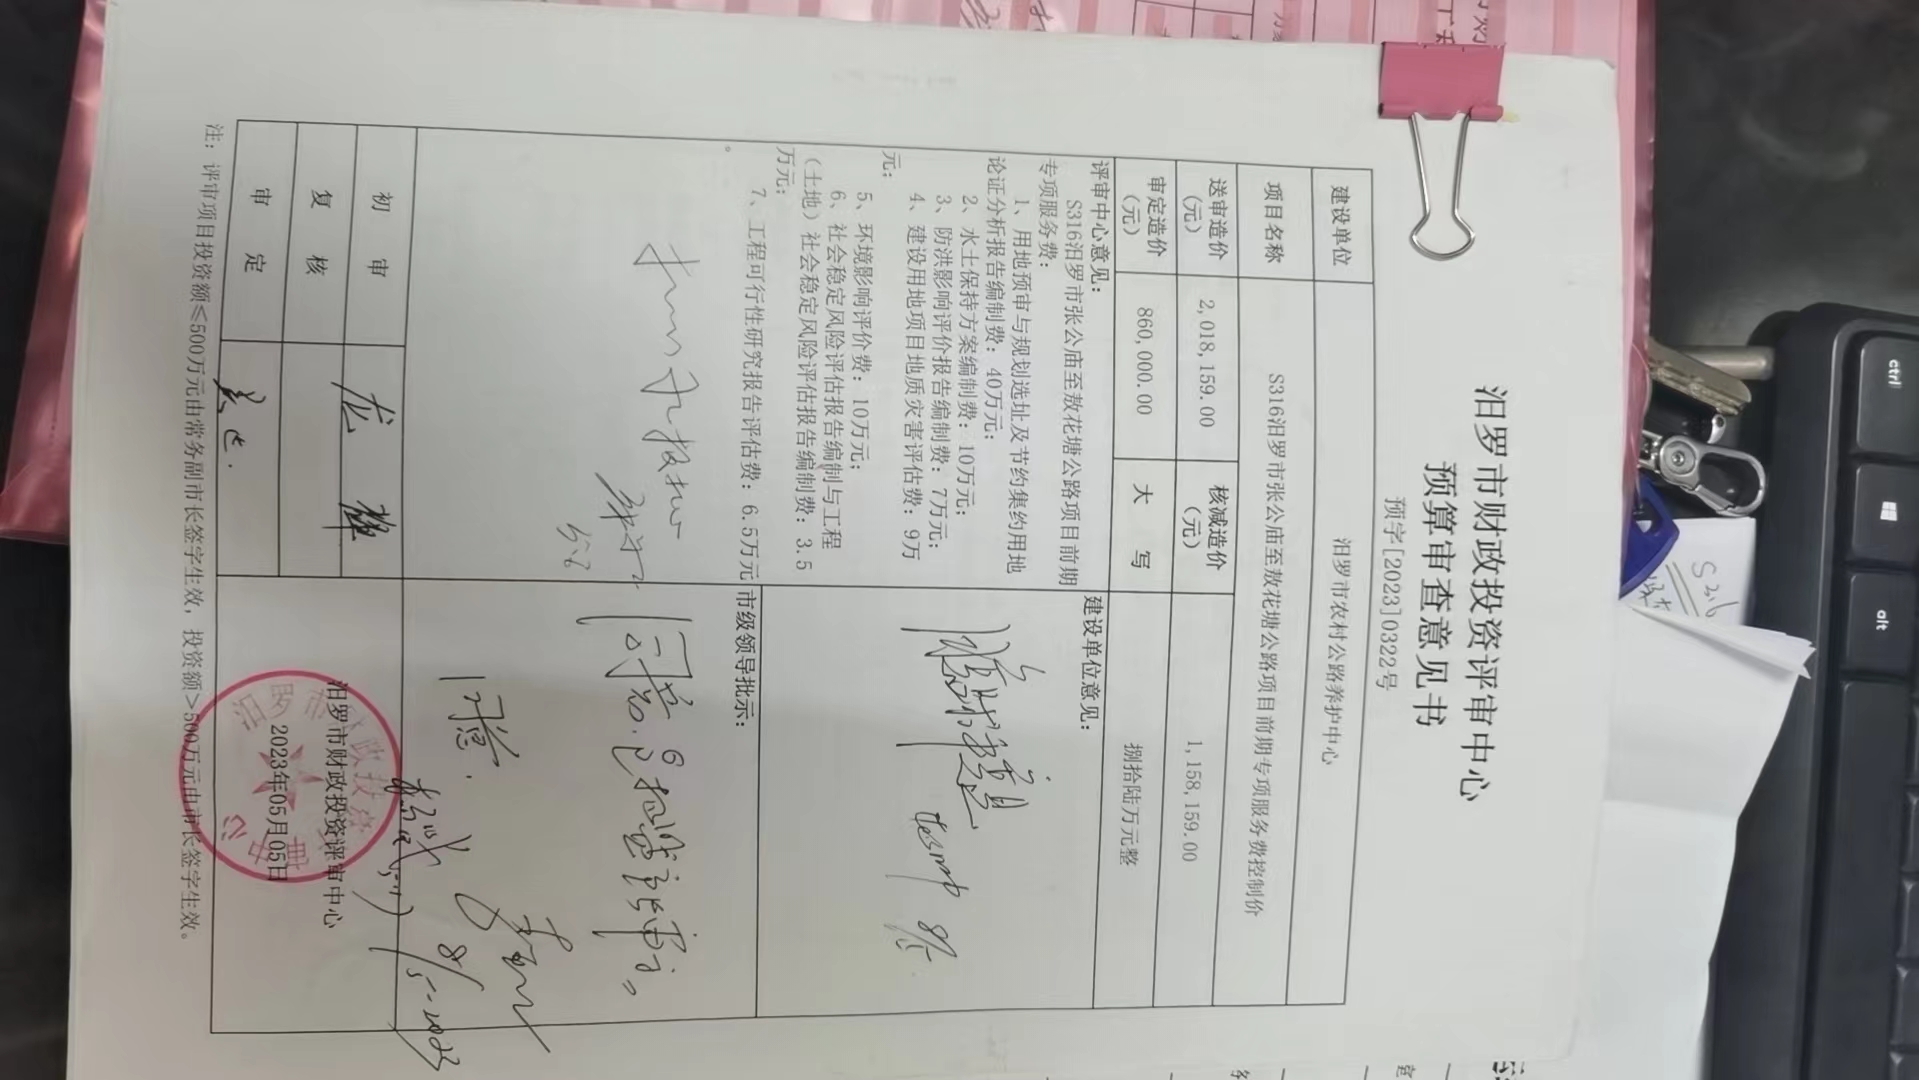 汨罗市财政投资评审中心
预算审查意见书
预字[2023]0322号
建设单位 汨罗市农村公路养护中心
项目名称 S316汨罗市张公庙至敖花塘公路项目前期专项服务费控制价
送审造价（元） 2,018,159.00 核减造价（元） 1,158,159.00
审定造价（元） 860,000.00 大 写 捌拾陆万元整
评审中心意见：
S316汨罗市张公庙至敖花塘公路项目前期
专项服务费：
1、用地预审与规划选址及节约集约用地
论证分析报告编制费：40万元；
2、水土保持方案编制费：10万元；
3、防洪影响评价报告编制费：7万元；
4、建设用地项目地质灾害评估费：9万
元；
5、环境影响评价费：10万元；
6、社会稳定风险评估报告编制与工程
（土地）社会稳定风险评估报告编制费：3.5
万元；
7、工程可行性研究报告评估费：6.5万元
。
建设单位意见：
市级领导批示：
同意
初 审
复 核
审 定
汨罗市财政投资评审中心
2023年05月05日
注：评审项目投资额≤500万元由常务副市长签字生效，投资额>500万元由市长签字生效。
ctrl
alt
S316